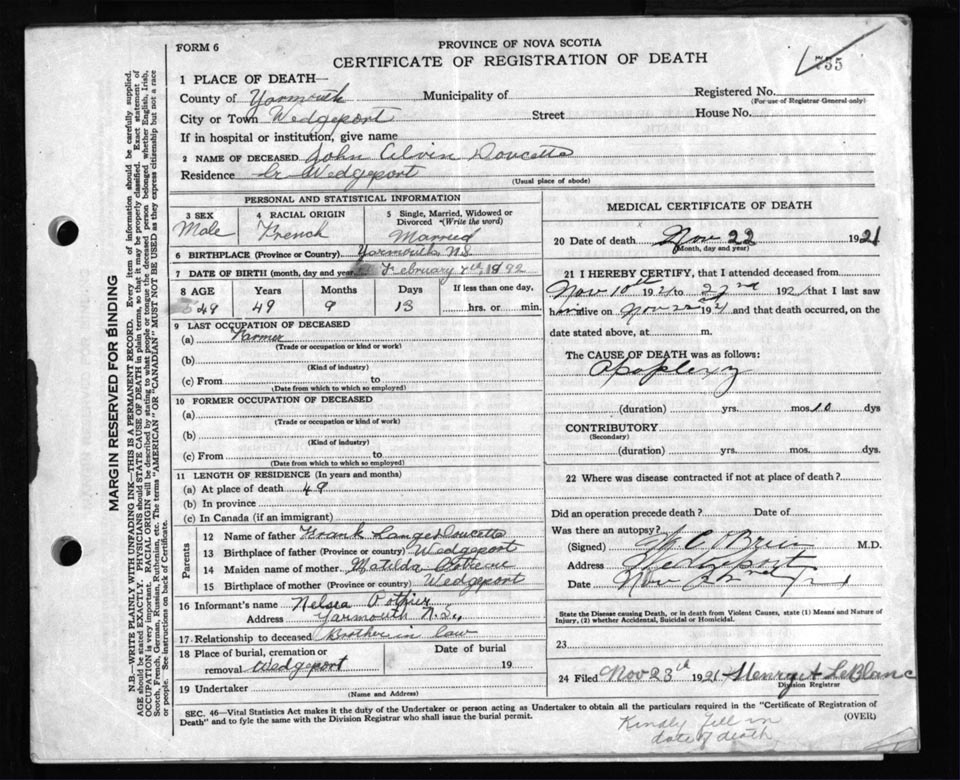 FORM 6
PROVINCE OF NOVA SCOTIA
CERTIFICATE OF REGISTRATION OF DEATH
755
1 PLACE OF DEATH—
County of Yarmouth Municipality of Registered No.
(For use of Registrar General only)
City or Town Wedgeport Street House No.
If in hospital or institution, give name
2 NAME OF DECEASED John Alvin Doucette
Residence Lr Wedgeport
(Usual place of abode)
PERSONAL AND STATISTICAL INFORMATION
3 SEX 4 RACIAL ORIGIN 5 Single, Married, Widowed or Divorced (Write the word)
Male French Married
6 BIRTHPLACE (Province or Country) Yarmouth N.S.
7 DATE OF BIRTH (month, day and year) February 7th 1872
8 AGE Years Months Days If less than one day,
49 49 9 13 hrs. or min.
9 LAST OCCUPATION OF DECEASED
(a) Farmer
(Trade or occupation or kind or work)
(b)
(Kind of industry)
(c) From to
(Date from which to which so employed)
10 FORMER OCCUPATION OF DECEASED
(a)
(Trade or occupation or kind of work)
(b)
(Kind of industry)
(c) From to
(Date from which to which so employed)
11 LENGTH OF RESIDENCE (In years and months)
(a) At place of death 49
(b) In province
(c) In Canada (if an immigrant)
Parents
12 Name of father Frank Doucette
13 Birthplace of father (Province or country) Wedgeport
14 Maiden name of mother Matilda
15 Birthplace of mother (Province or country) Wedgeport
16 Informant's name Pothier
Address Yarmouth N.S.
17 Relationship to deceased Brother in law
18 Place of burial, cremation or removal Wedgeport Date of burial 19
19 Undertaker
(Name and Address)
MEDICAL CERTIFICATE OF DEATH
20 Date of death Nov 22 1921
(Month, day and year)
21 I HEREBY CERTIFY, that I attended deceased from
Nov 10th 1921 to 22nd 1921 that I last saw
him alive on Nov 22 1921 and that death occurred, on the
date stated above, at m.
The CAUSE OF DEATH was as follows:
Apoplexy
(duration) yrs. mos. 10 dys
CONTRIBUTORY
(Secondary)
(duration) yrs. mos. dys.
22 Where was disease contracted if not at place of death?
Did an operation precede death? Date of
Was there an autopsy?
(Signed) O'Brien M.D.
Address Wedgeport
Date Nov
State the Disease causing Death, or in death from Violent Causes, state (1) Means and Nature of
Injury, (2) whether Accidental, Suicidal or Homicidal.
23
24 Filed Nov 23th 1921 Henry A LeBlanc
Division Registrar
SEC. 46—Vital Statistics Act makes it the duty of the Undertaker or person acting as Undertaker to obtain all the particulars required in the "Certificate of Registration of
Death" and to fyle the same with the Division Registrar who shall issue the burial permit.
(OVER)
Kindly fill in
date of death
MARGIN RESERVED FOR BINDING
N.B.—WRITE PLAINLY WITH UNFADING INK—THIS IS A PERMANENT RECORD. Every item of information should be carefully supplied.
AGE should be stated EXACTLY. PHYSICIANS should STATE CAUSE OF DEATH in plain terms, so that it may be properly classified. Exact statement of
OCCUPATION is very important. RACIAL ORIGIN will be described by stating to what people or tongue the deceased person belonged whether English, Irish,
Scotch, French, German, Russian, Ruthenian, etc. The terms "AMERICAN" OR "CANADIAN" MUST NOT BE USED as they express citizenship but not a race
or people. See instructions on back of Certificate.